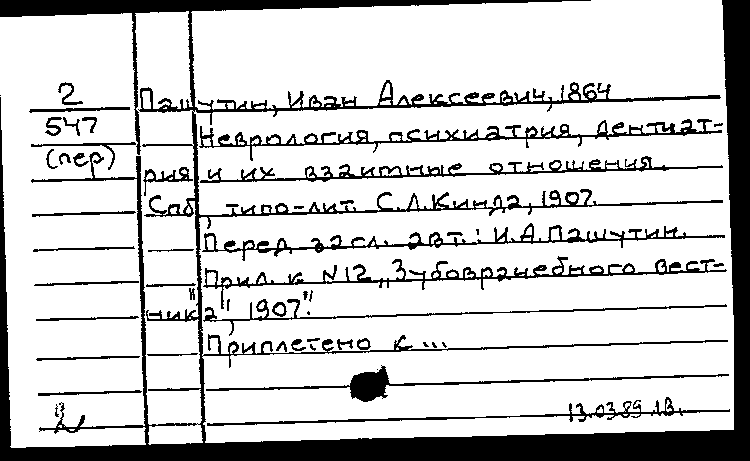 2 Пашутин, Иван Алексеевич, 1864
547 Неврология, психиатрия, дентиат-
(пер) рия и их взаитные отношения.
Спб, типо-лит. С.Л.Кинда, 1907.
Перед загл. авт.: И.А.Пашутин.
Прил. к N12 „Зубоврачебного вест-
ника", 1907".
Приплетено к ...
13.03.89